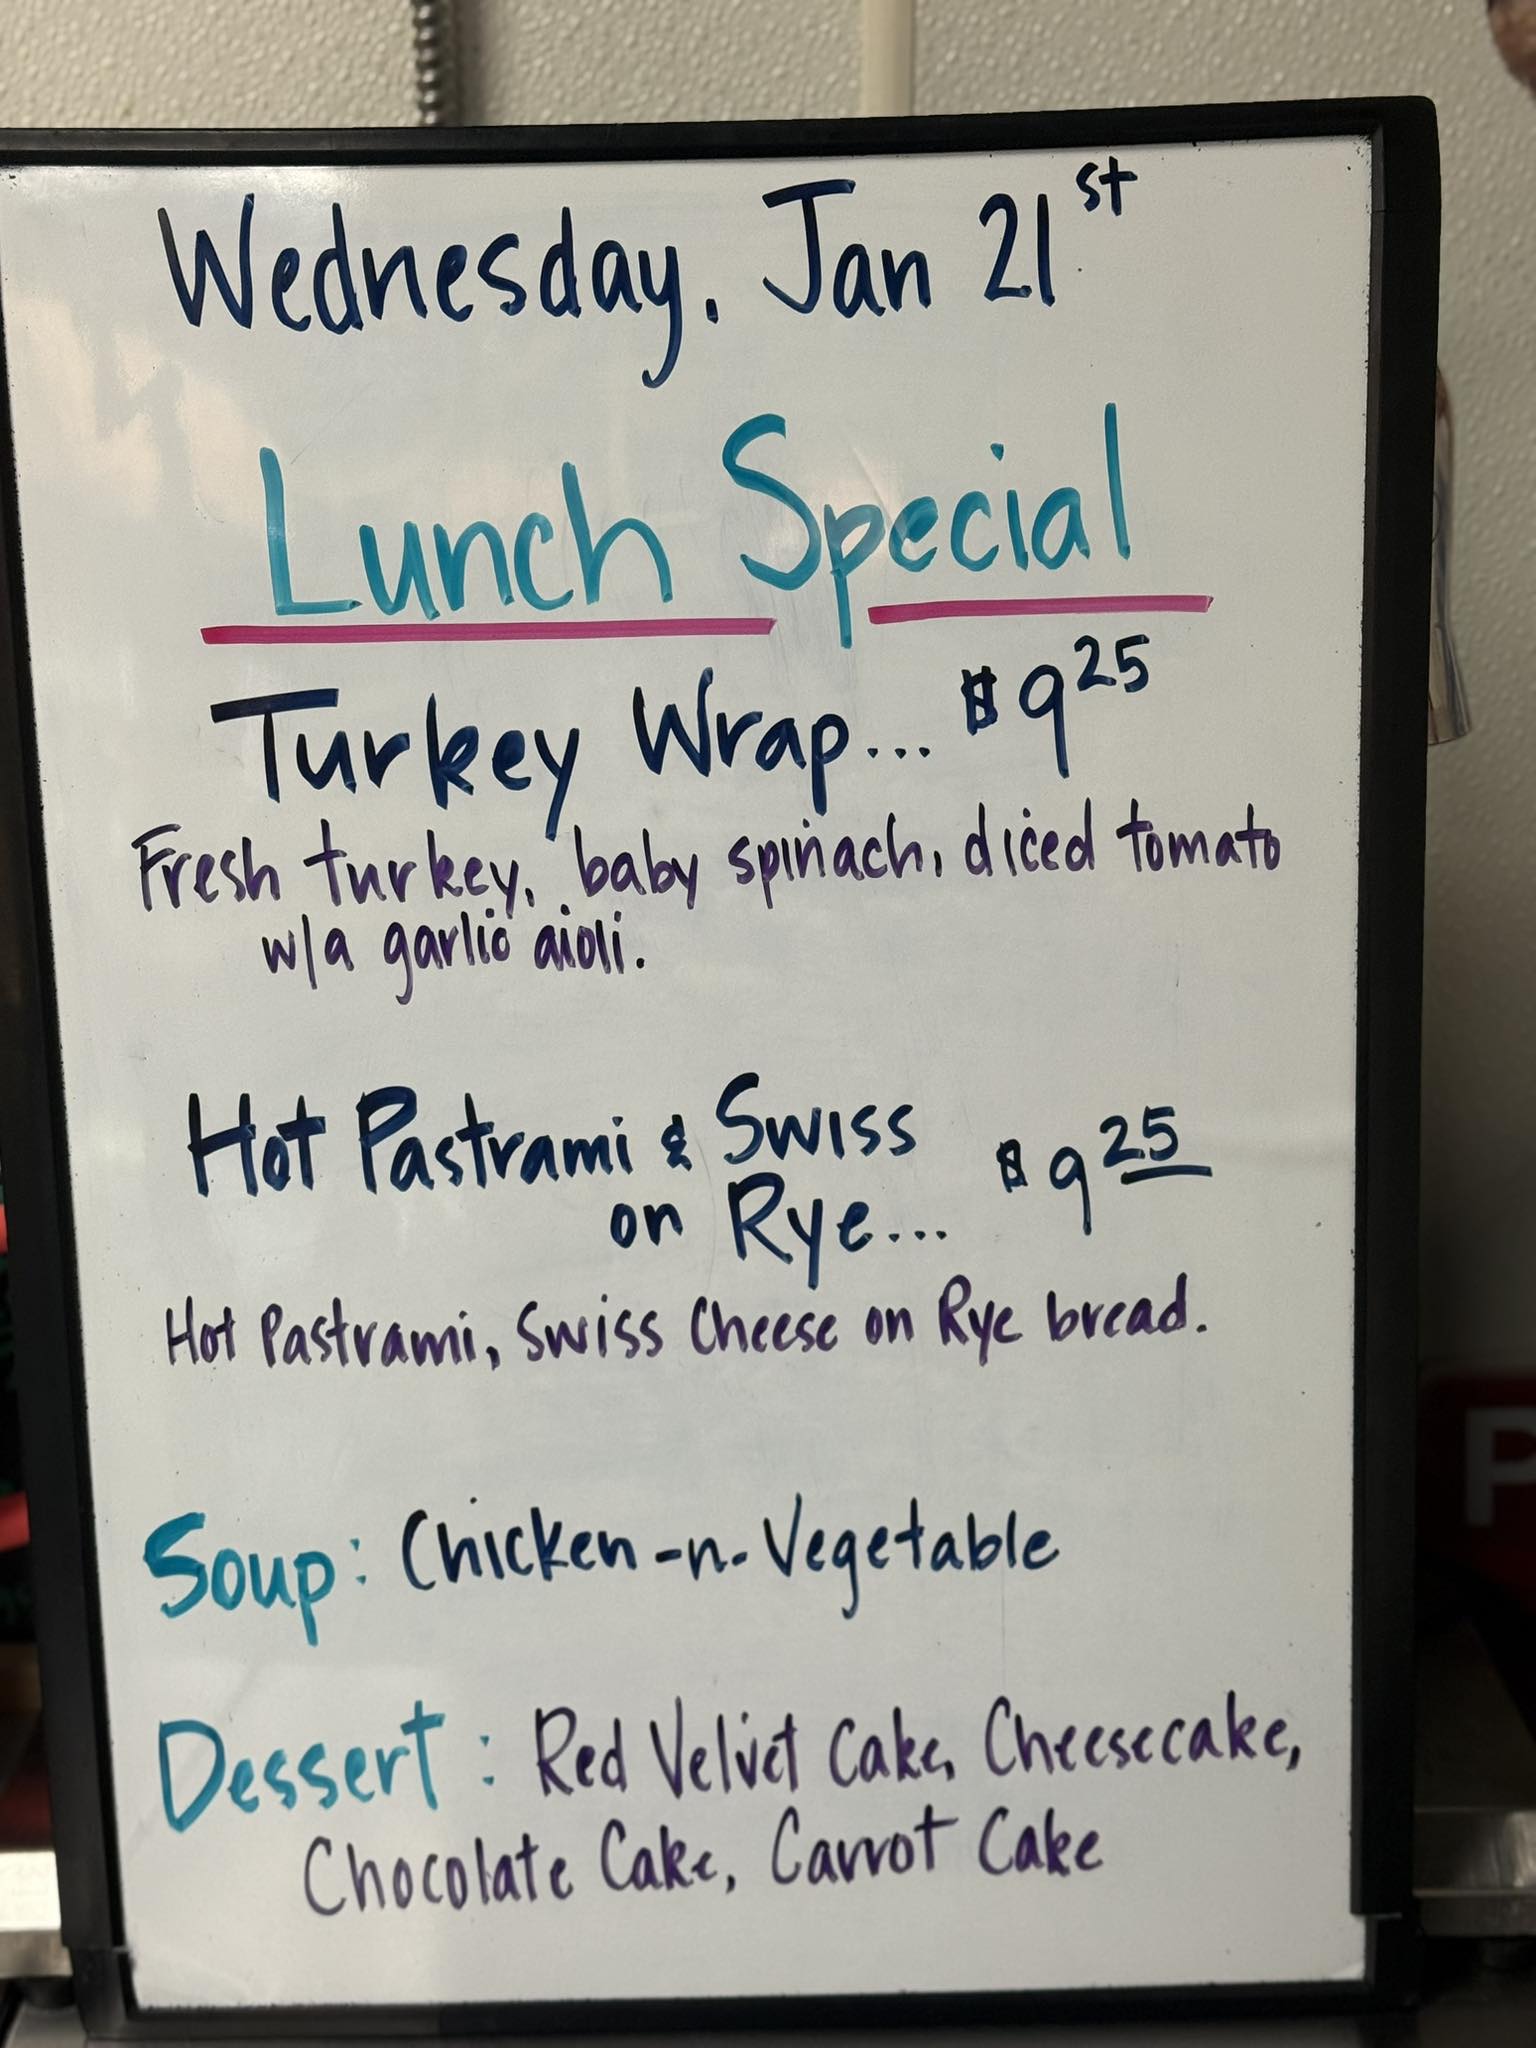 Wednesday, Jan 21st
Lunch Special
Turkey Wrap... $9 25
Fresh turkey, baby spinach, diced tomato
w/a garlic aioli.
Hot Pastrami & Swiss
on Rye... $9 25
Hot Pastrami, Swiss Cheese on Rye bread.
Soup: Chicken-n-Vegetable
Dessert: Red Velvet Cake, Cheesecake,
Chocolate Cake, Carrot Cake
P